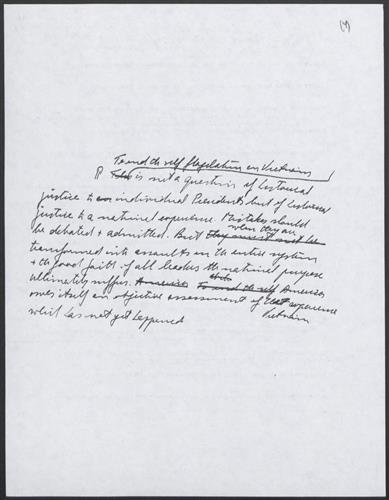 (4)
To end the self flagellation on Vietnam
¶ This is not a question of historical
justice to an individual Presidents but of historical
justice to a national experience. Mistakes should
be debated & admitted. But they must not be when they are
transformed into assaults on the entire system
& the good faith of all leaders the national purpose
ultimately suffers. America To end the self America
owes itself an objective assessment of that experience
Vietnam
which has not yet happened